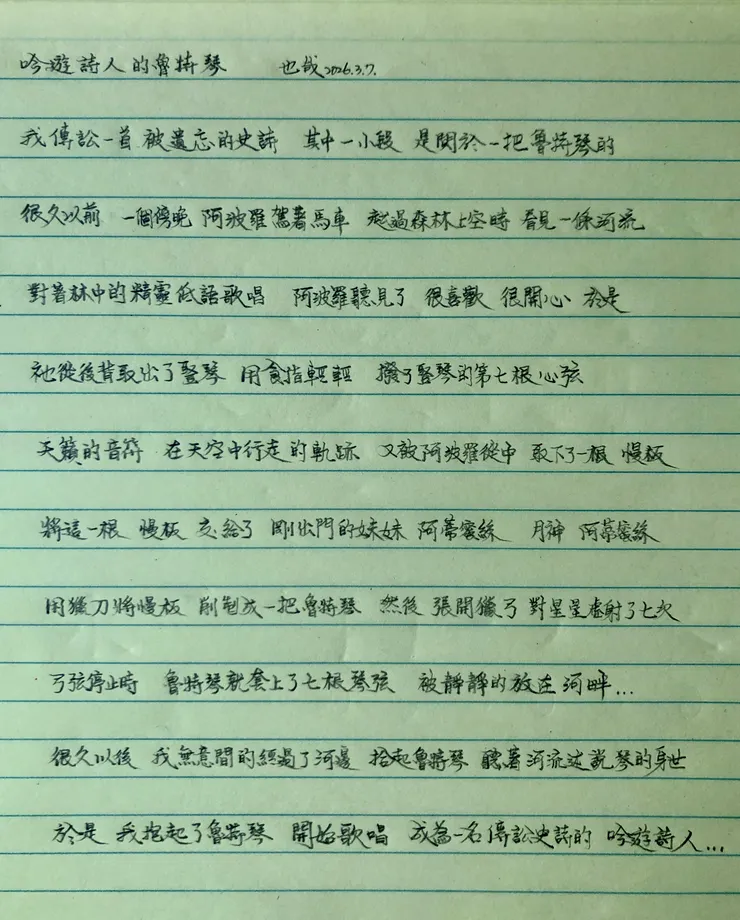 吟遊詩人的魯特琴 也哉2026.3.7.
我傳訟一首被遺忘的史詩 其中一小段 是関於一把魯特琴的
很久以前 一個傍晚 阿波羅駕著馬車 越過森林上空時 看見一條河流
對著林中的精靈低語歌唱 阿波羅聽見了 很喜歡 很開心 於是
祂從後背取出了豎琴 用食指輕輕 撥了豎琴的第七根心弦
天籟的音符 在天空中行走的軌跡 又被阿波羅從中 取下了一根 慢板
將這一根 慢板 交給了 剛出門的妹妹 阿蒂蜜絲 月神 阿蒂蜜絲
用獵刀將慢板 削制成一把魯特琴 然後 張開獵弓 對星星虛射了七次
弓弦停止時 魯特琴就套上了七根琴弦 被靜靜的放在河畔...
很久以後 我無意間的經過了河邊 拾起魯特琴 聽著河流述說琴的身世
於是 我抱起了魯特琴 開始歌唱 成為一名傳訟史詩的 吟遊詩人...